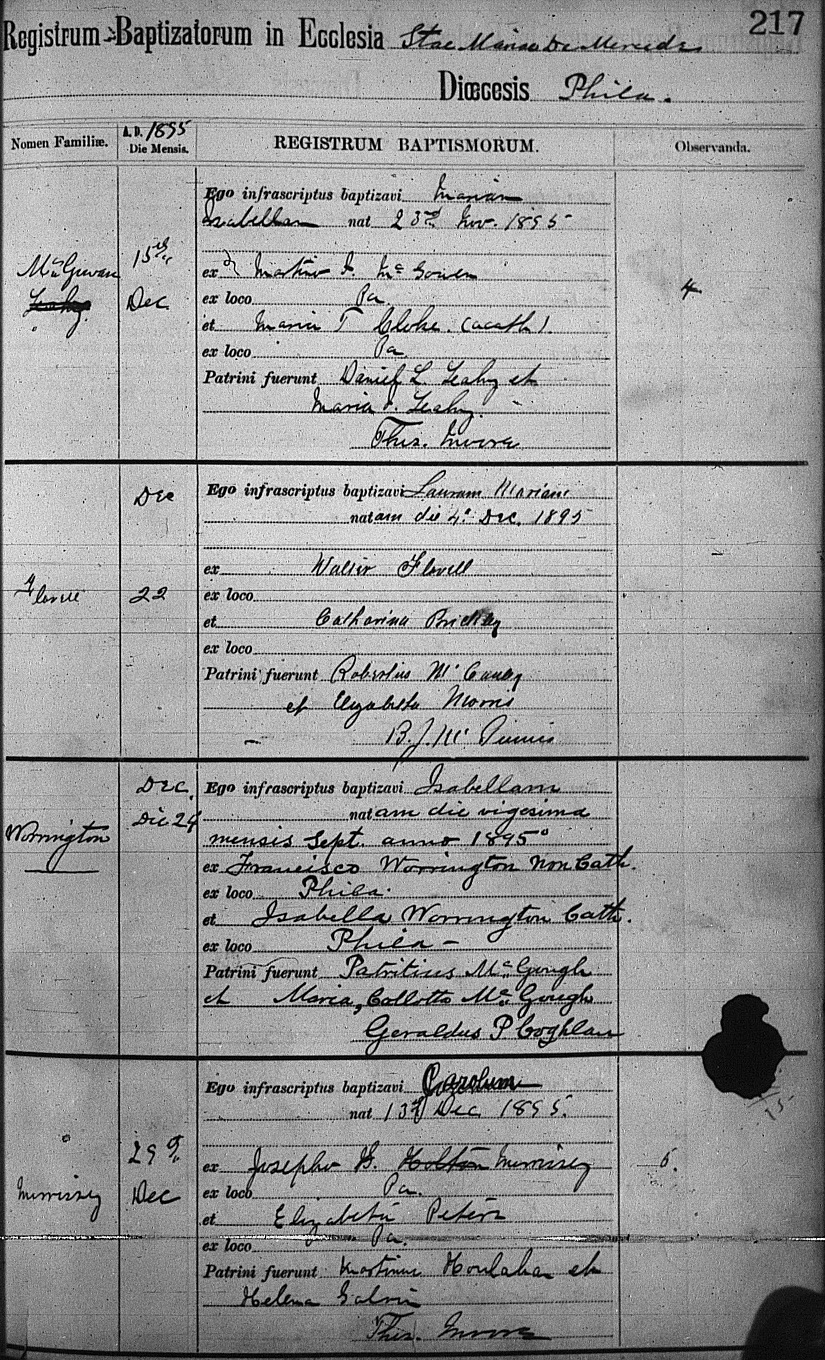 217
Registrum Baptizatorum in Ecclesia Stae Mariae De Mercede
Diœcesis Phila.
Nomen Familiæ.
A. D. 1895
Die Mensis.
REGISTRUM BAPTISMORUM.
Observanda.
Ego infrascriptus baptizavi Mariam
Isabellam nat 23rd Nov. 1895
McGowan
Leahy
15th
Dec
ex Martino J. McGowen
4
ex loco Pa.
et Maria T Cloke (acath).
ex loco Pa
Patrini fuerunt Daniel L. Leahy et
Maria J. Leahy
Thos. Moore
Dec
Ego infrascriptus baptizavi Lauram Mariam
natam die 4° Dec. 1895
Flavell
22
ex Walter Flavell
ex loco
et Catharina Brickley
ex loco
Patrini fuerunt Robertus
et Elizabeta Morris
B. J. Mc
Dec.
Die 24
Ego infrascriptus baptizavi Isabellam
natam die vigesima
Worrington
mensis Sept. anno 1895°
ex Francisco Worrington Non Cath.
ex loco Phila.
et Isabella Worrington Cath.
ex loco Phila -
Patrini fuerunt Patritius McGough
et Maria, Collotta McGough
Geraldus P Coghlan
Ego infrascriptus baptizavi Carolum
nat 13th Dec 1895.
Morrissey
29th
Dec
ex Josepho G. Holton Morrissey
5.
ex loco Pa.
et Elizabeta Peters
ex loco Pa.
Patrini fuerunt Martinus Houlahan et
Helena Galvin
Thos. Moore